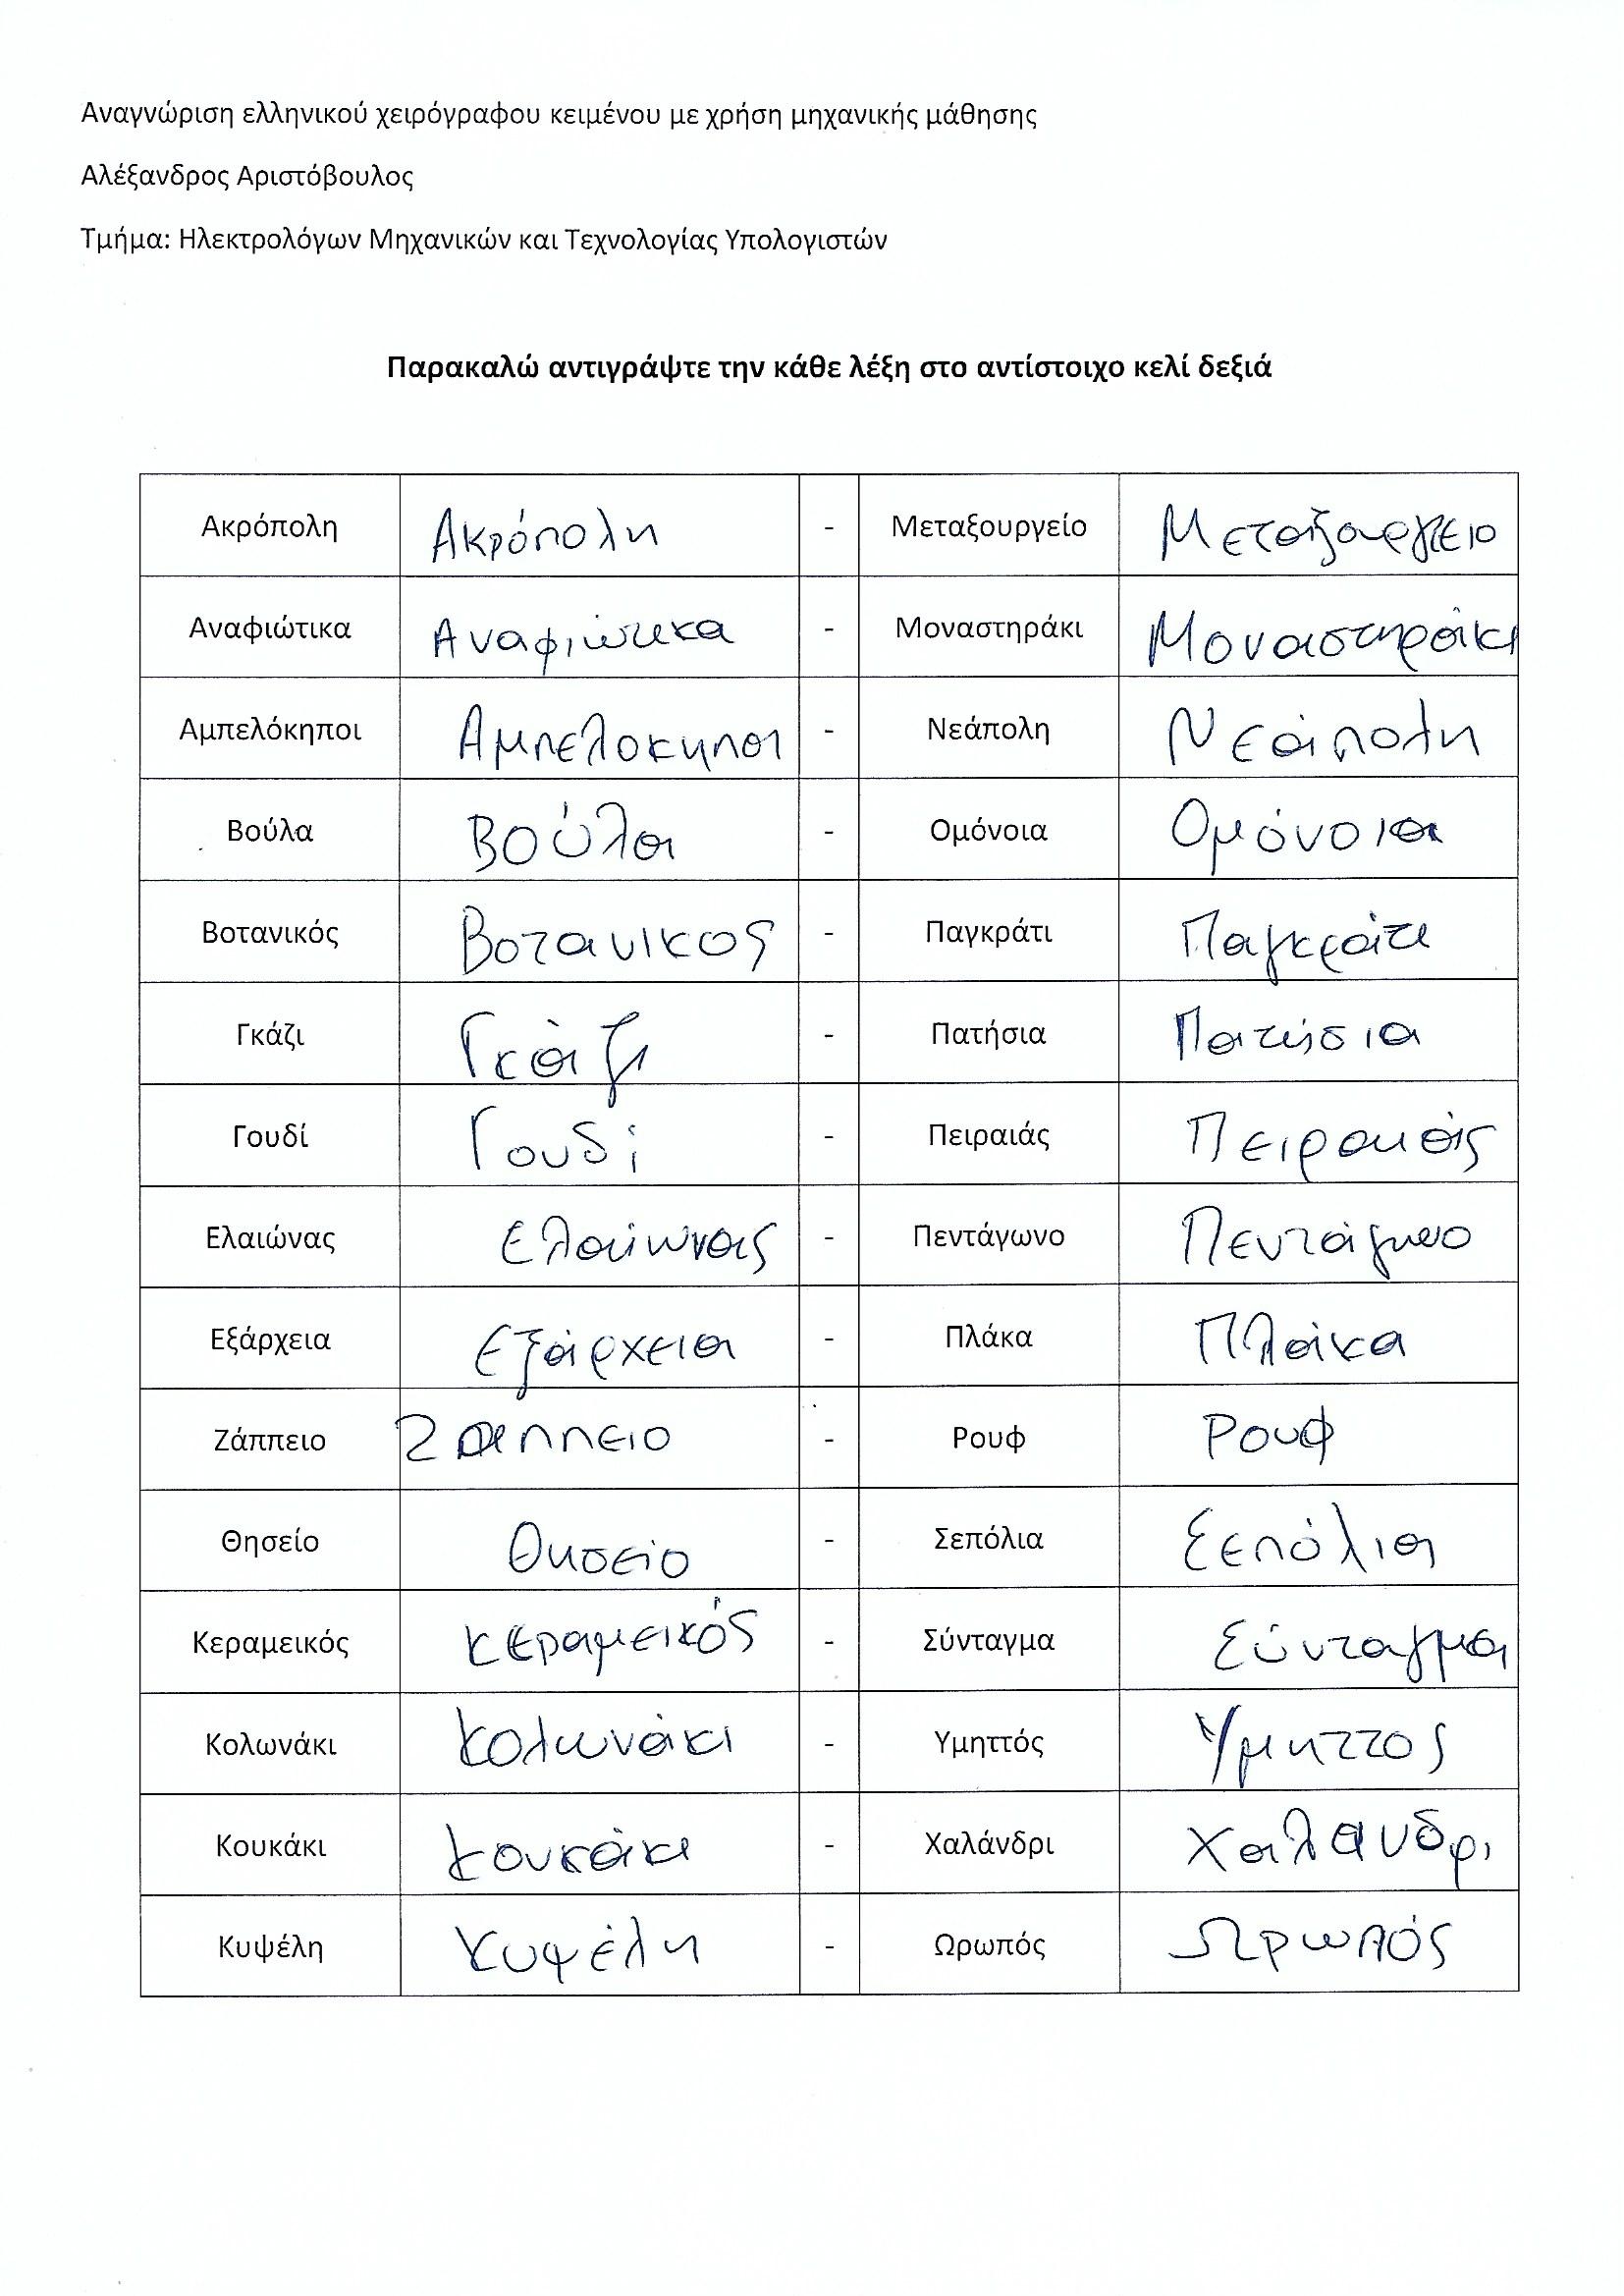 Αναγνώριση ελληνικού χειρόγραφου κειμένου με χρήση μηχανικής μάθησης
Αλέξανδρος Αριστόβουλος
Τμήμα: Ηλεκτρολόγων Μηχανικών και Τεχνολογίας Υπολογιστών
Παρακαλώ αντιγράψτε την κάθε λέξη στο αντίστοιχο κελί δεξιά
Ακρόπολη Ακρόπολη - Μεταξουργείο Μεταξουργειο
Αναφιώτικα Αναφιώτικα - Μοναστηράκι Μοναστηράκι
Αμπελόκηποι Αμπελοκηποι - Νεάπολη Νεάπολη
Βούλα Βούλα - Ομόνοια Ομόνοια
Βοτανικός Βοτανικος - Παγκράτι Παγκράτι
Γκάζι Γκάζι - Πατήσια Πατήσια
Γουδί Γουδί - Πειραιάς Πειραιάς
Ελαιώνας Ελαιώνας - Πεντάγωνο Πεντάγωνο
Εξάρχεια Εξάρχεια - Πλάκα Πλάκα
Ζάππειο Ζαππειο - Ρουφ Ρουφ
Θησείο Θησείο - Σεπόλια Σεπόλια
Κεραμεικός Κεραμεικός - Σύνταγμα Σύνταγμα
Κολωνάκι Κολωνάκι - Υμηττός Υμηττος
Κουκάκι Κουκάκι - Χαλάνδρι Χαλανδρι
Κυψέλη Κυψέλη - Ωρωπός Ωρωπός